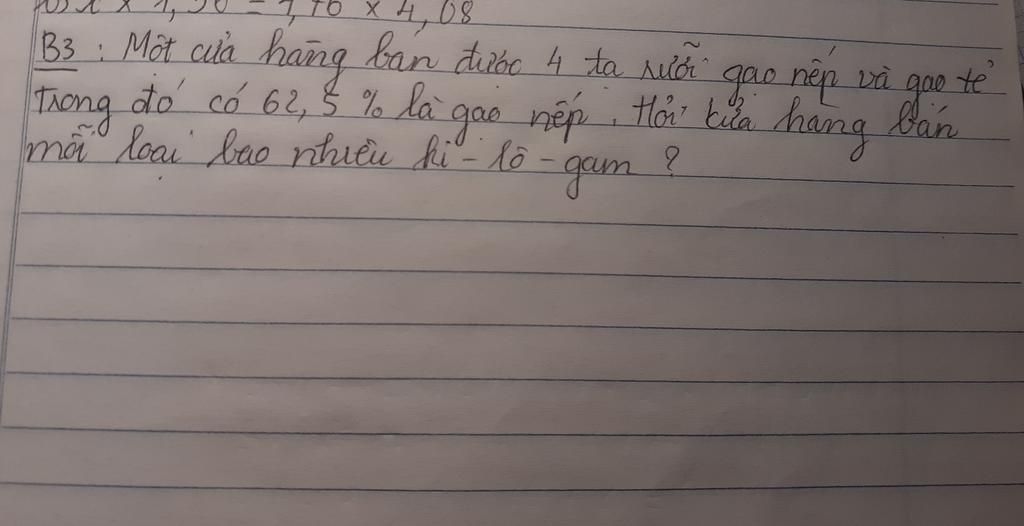 x × 1,36 = 1,76 × 4,08
B3: Một cửa hàng bán được 4 tạ rưỡi gạo nếp và gạo tẻ
trong đó có 62,5 % là gạo nếp. Hỏi cửa hàng bán
mỗi loại bao nhiêu ki-lô-gam?